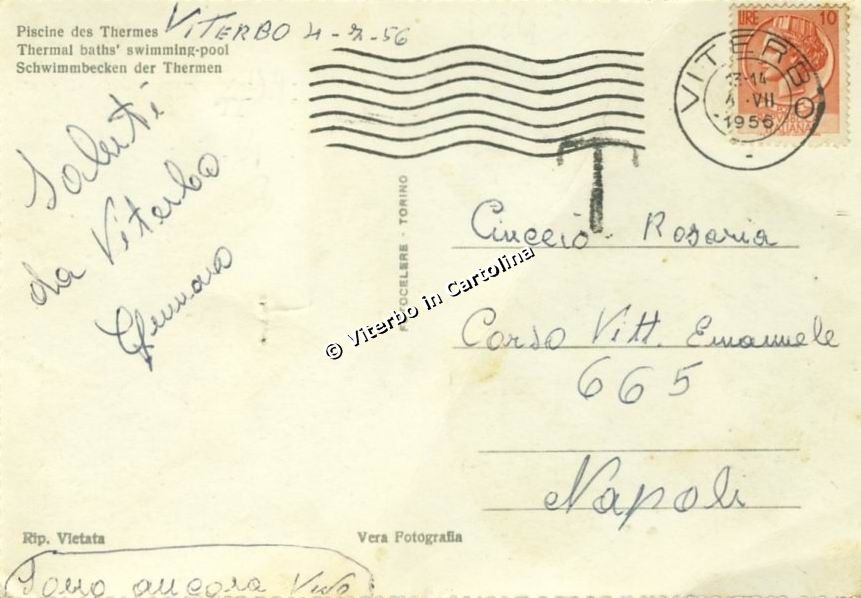 Piscine des Thermes
Thermal baths' swimming-pool
Schwimmbecken der Thermen
VITERBO 4-7-56
LIRE 10
VITERBO
13-14
4 VII
1956
REPUBBLICA
ITALIANA
T
Saluti
da Viterbo
Gennaro
FOTOCELERE - TORINO
© Viterbo in Cartolina
Rosaria
Corso Vitt. Emanuele
665
Napoli
Rip. Vietata
Vera Fotografia
Sono ancora vivo